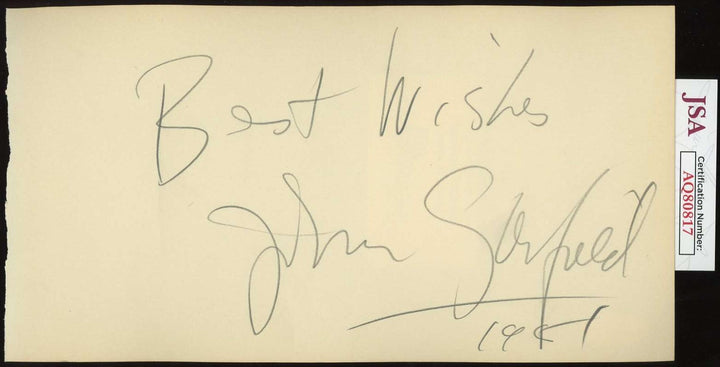 Best Wishes
John Garfield
1941
JSA
Certification Number:
AQ80817